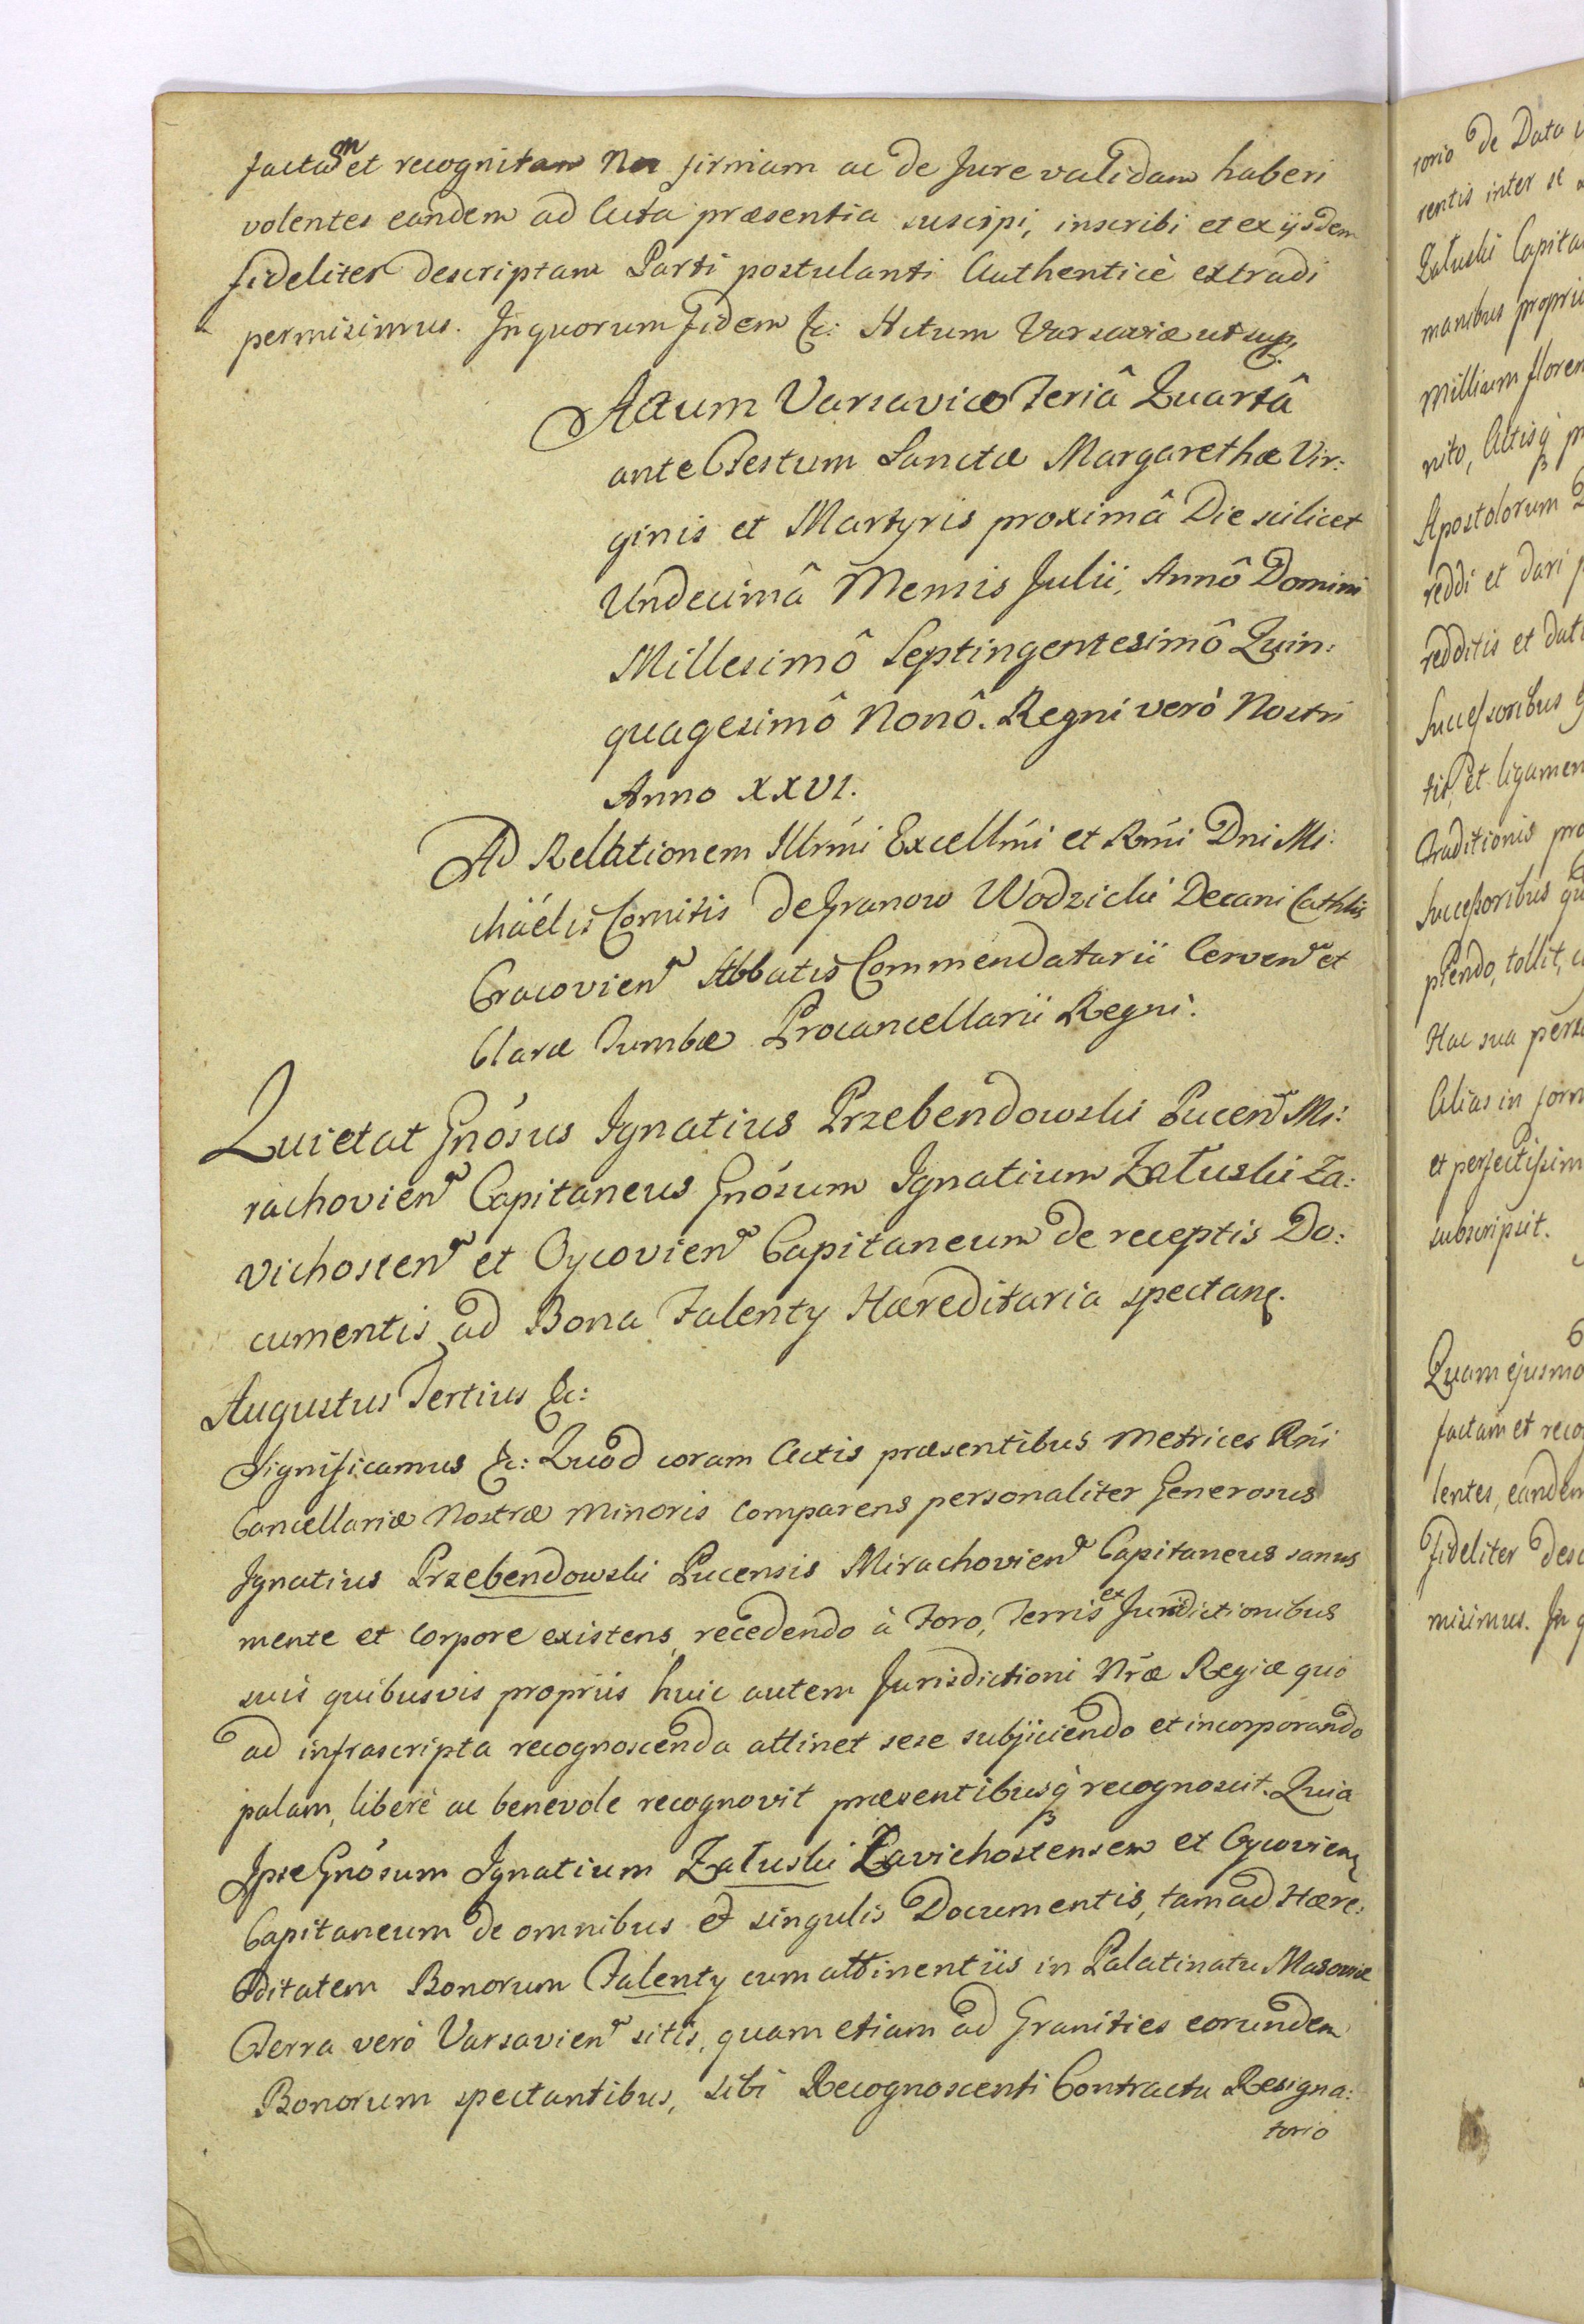 factam et recognitam firmam ac de Jure validam haberi
volentes eandem ad Acta præsentia suscipi, inscribi et ex ijsdem
fideliter descriptam Parti postulanti Authenticè extradi
permisimus. In quorum Fidem &c: Actum Varsaviæ ut sup.
Actum Varsaviæ Feriâ Quartâ
ante Festum Sanctæ Margarethæ Vir:
ginis et Martyris proximâ Die scilicet
Undecimâ Mensis Julii, Annô Domini
Millesimô Septingentesimô Quin:
quagesimô Nonô. Regni verò Nostri
Anno XXVI.
Ad Relationem Illrmi Excellmi et Rmi Dni Mi:
chäelis Comitis de Granow Wodzicki Decani Cathlis
Cracovien Abbatis Commendatarii Cerven et
Claræ Tumbæ Procancellarii Regni.
Quietat Gnosus Ignatius Przebendowski Pucen Mi:
rachovien Capitaneus Gnosum Ignatium Załuski Za:
vichosten et Oycovien Capitaneum de receptis Do:
cumentis ad Bona Falenty Hæreditaria spectan.
Augustus Tertius &c:
Significamus &c: Quod coram Actis præsentibus Metrices Rni
Cancellariæ Nostræ Minoris comparens personaliter Generosus
Ignatius Przebendowski Pucensis Mirachovien Capitaneus sanus
mente et Corpore existens, recedendo à Foro, Terris et Jurisdictionibus
suis quibusvis propriis huic autem Jurisdictioni Nræ Regiæ quo
ad infrascripta recognoscenda attinet sese subjiciendo et incorporando
palam, liberè ac benevole recognovit præsentibusq́ recognoscit. Quia
Ipse Gnosum Ignatium Załuski Zavichostensem et Oycovien
Capitaneum de omnibus et singulis Documentis, tam ad Hære:
ditatem Bonorum Falenty cum attinentiis in Palatinatu Masoviæ
Terra verò Varsavien sitis, quam etiam ad Granities eorundem
Bonorum spectantibus, sibi Recognoscenti Contractu Resigna:
torio
torio de Data
rentis inter se
Załuski Capita
manibus propri
Millium floren
nito, Actisq́
Apostolorum
reddi et dari
redditis et dat
Successoribus
tit, et ligamen
traditionis pro
Successoribus
plendo, tollit,
Hac sua perso
Alias in form
et perfectissim
subscripsit.
Quam ejusmo
factam et reco
lentes, eandem
Fideliter desc
misimus. In q